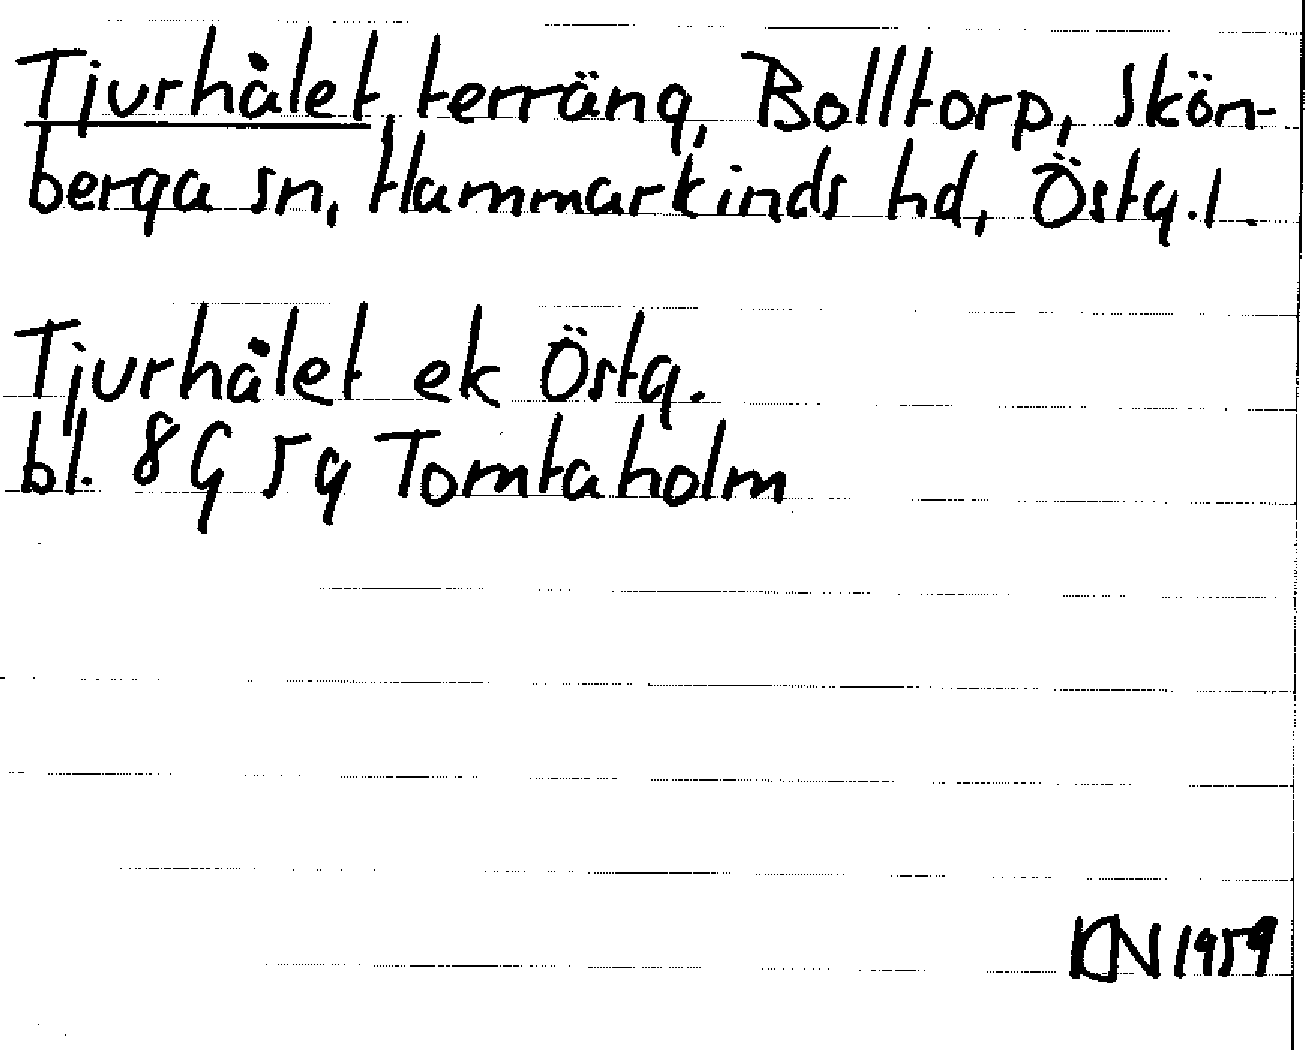 Tjurhålet, terräng, Bolltorp, Skön-
berga sn, Hammarkinds hd, Östg.l.
Tjurhålet ek Östg.
bl. 8G 5g Tomtaholm
KN 1959